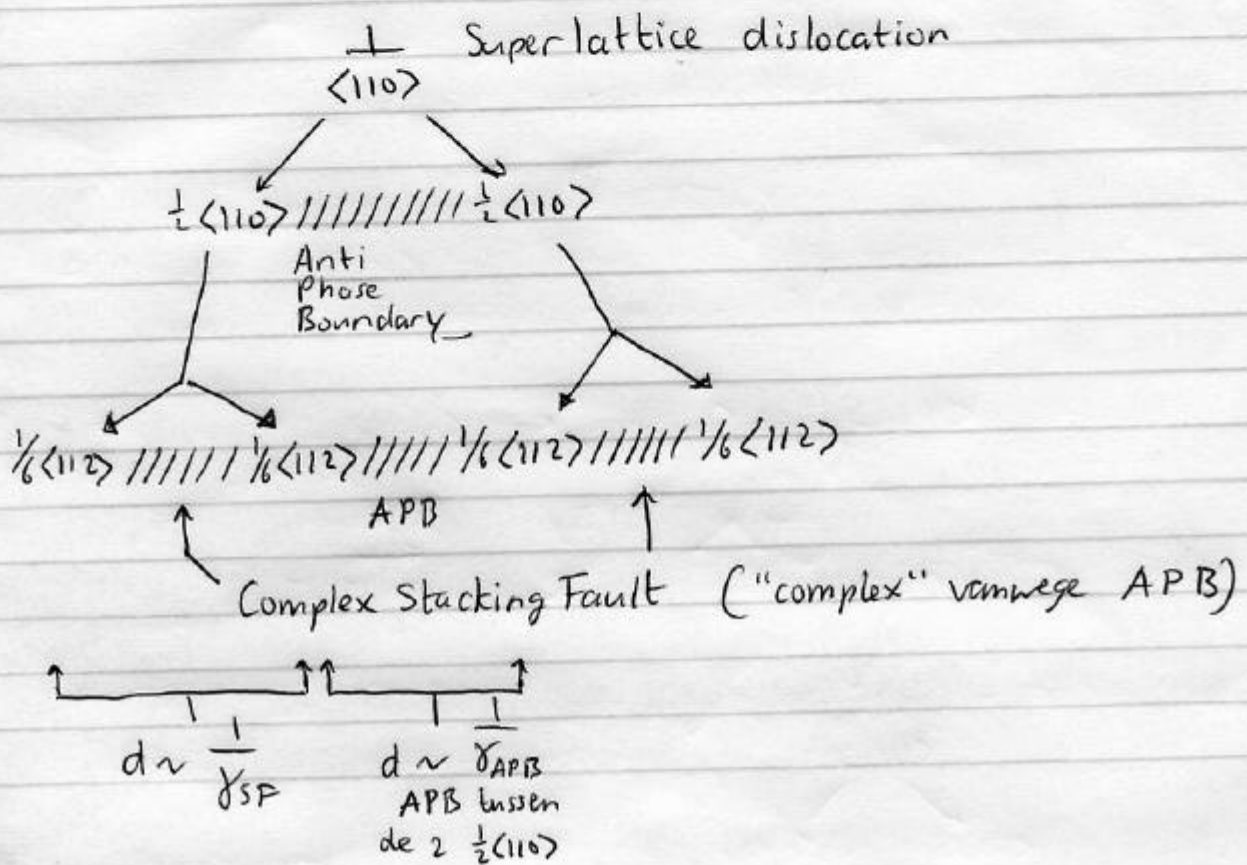 ⊥ Superlattice dislocation
<110>
½<110> ////////// ½<110>
Anti
Phase
Boundary
1/6<112> ////// 1/6<112> ///// 1/6<112> ////// 1/6<112>
APB
Complex Stacking Fault ("complex" vanwege APB)
d ~ 1/γSF d ~ 1/γAPB
APB tussen
de 2 ½<110>